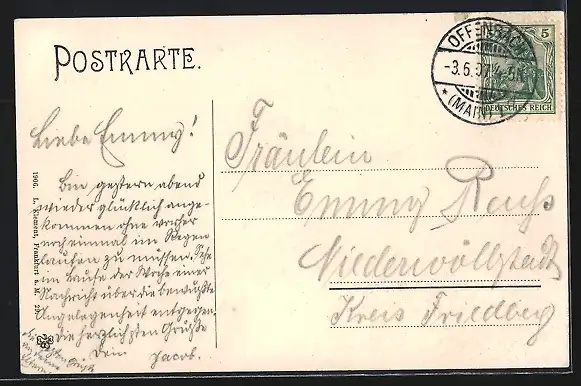 POSTKARTE.
OFFENBACH
-3.6.07
* (MAIN)
5
DEUTSCHES REICH
Liebe Emmy!
Bin gestern abend
wieder glücklich ange-
kommen ohne vorher
noch einmal im Regen
laufen zu müssen. Sehe
im Laufe der Woche einer
Nachricht über die bewußte
Angelegenheit entgegen.
Die herzlichsten Grüße
Dein
Jacob.
Fräulein
Emmy Reuß
Niederwöllstadt
Kreis Friedberg
1906. L. Klement, Frankfurt a. M. 29.